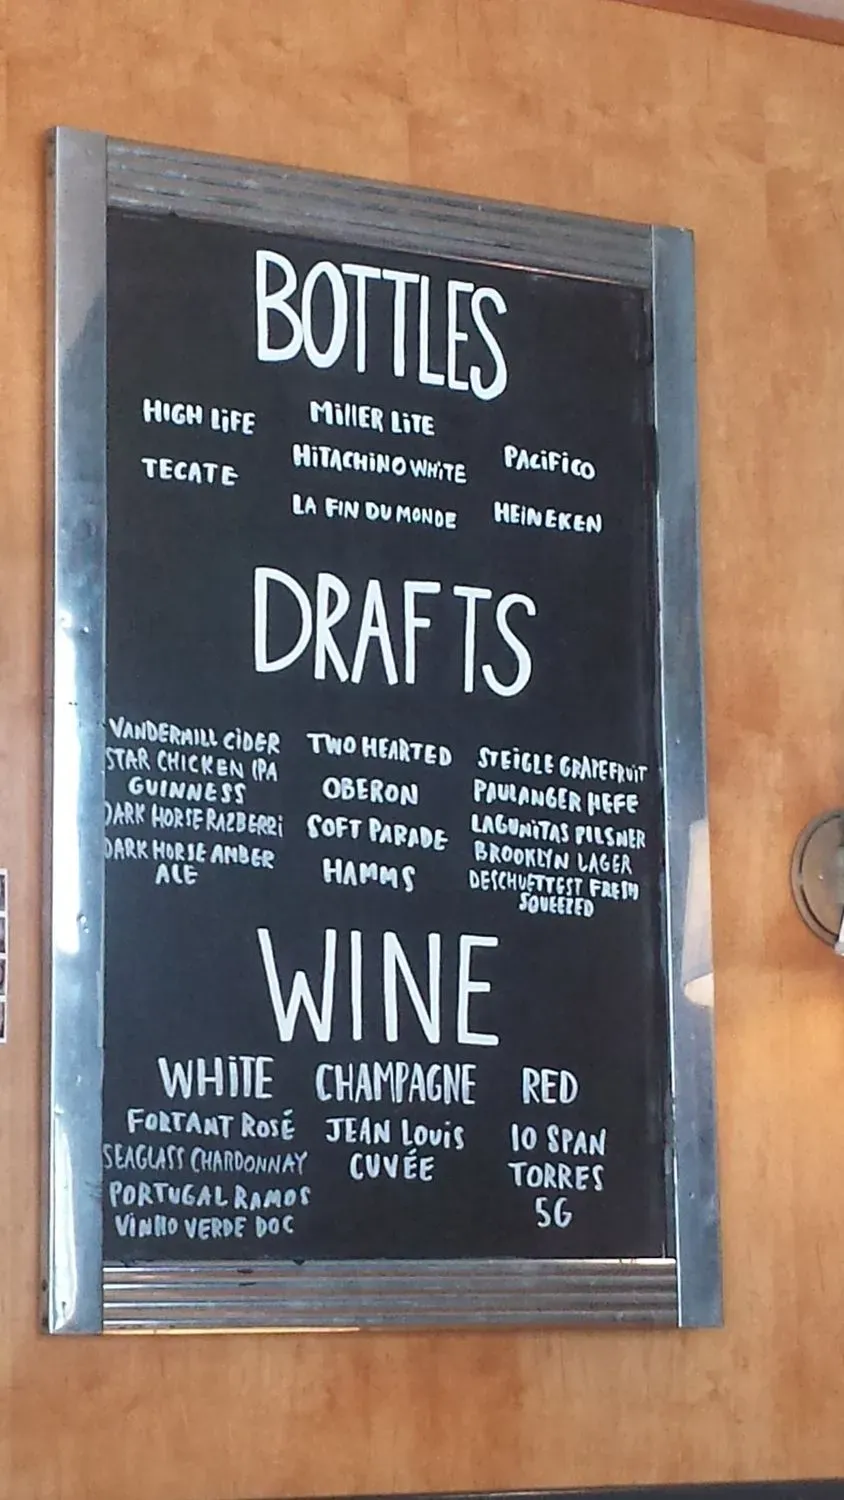 BOTTLES
HIGH LiFE
TECATE
MillER LiTE
HiTACHiNO WHiTE
LA FIN DU MONDE
PACiFiCO
HEiNEKEN
DRAFTS
VANDERMILL CiDER
STAR CHICKEN IPA
GUINNESS
DARK HORSE RAZBERRi
DARK HORSE AMBER
ALE
TWO HEARTED
OBERON
SOFT PARADE
HAMMS
STEiGLE GRAPEFRUiT
PAULANGER HEFE
LAGUNiTAS PILSNER
BROOKLYN LAGER
DESCHUETTEST FRESH
SQUEEZED
WINE
WHiTE
FORTANT ROSÉ
SEAGLASS CHARDONNAY
PORTUGAL RAMOS
ViNHO VERDE DOC
CHAMPAGNE
JEAN LOUiS
CUVÉE
RED
10 SPAN
TORRES
5G